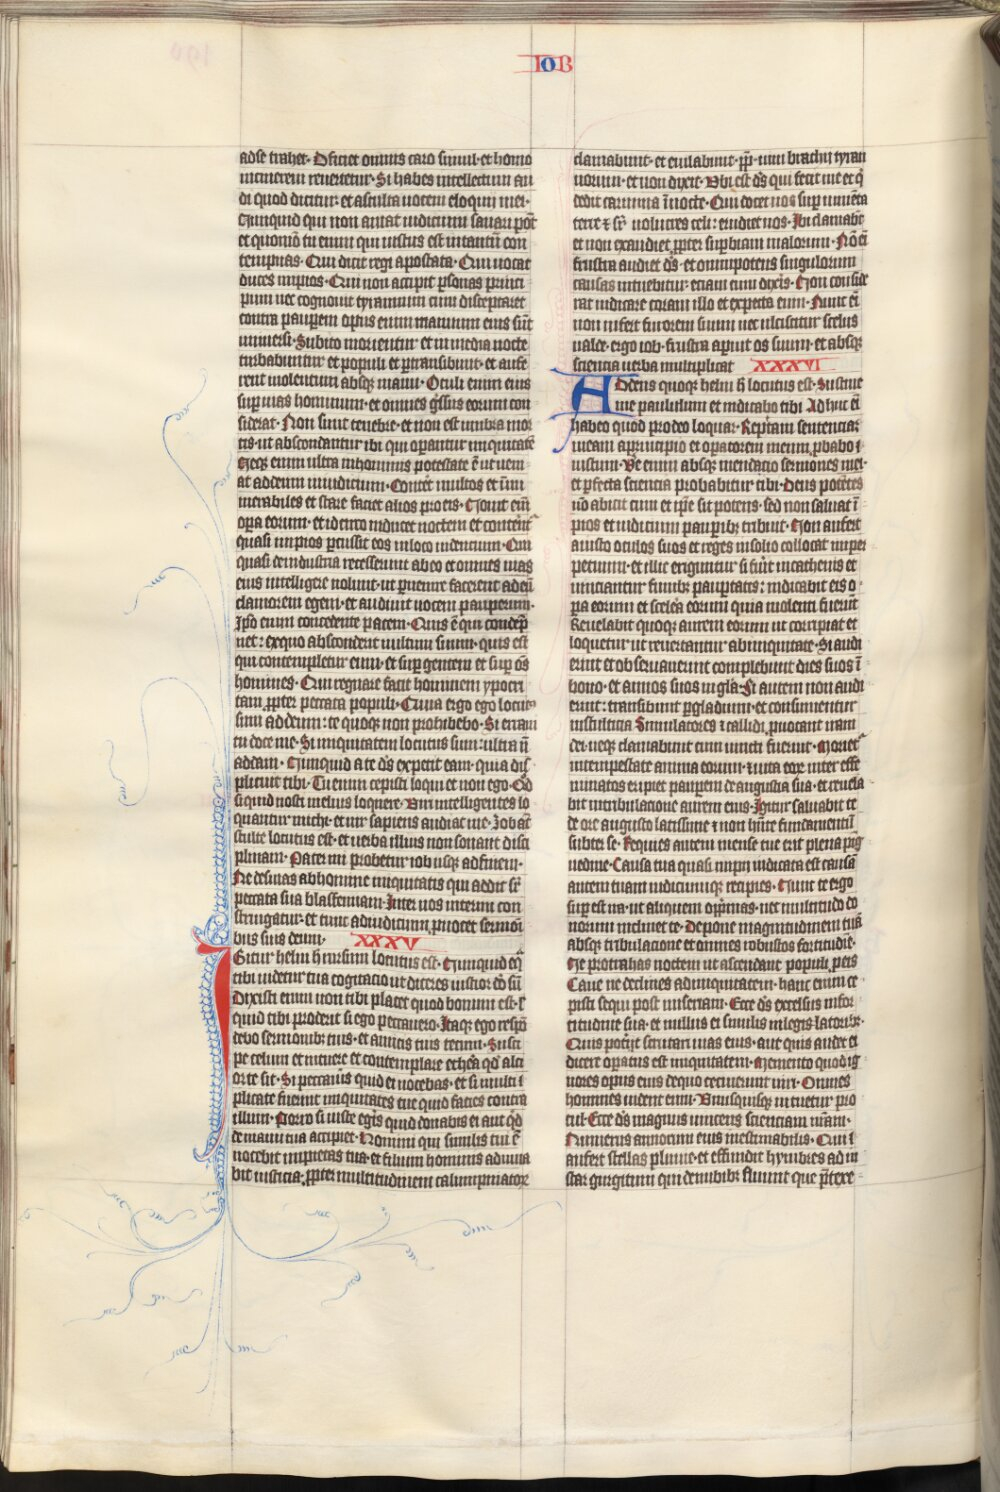 IOB
adse trahet· Deficiet omnis caro simul· et homo
in cinerem revertetur· Si habes intellectum au
di quod dicitur· et asculta uocem eloquij mei·
Nunquid qui non amat iudicium sanari pot̄
et quomō tu eum qui iustus est in tantū con
tempnas· Qui dicit regi apostata· Qui uocat
duces impios· Qui non accipit ꝑsonas princi
pum nec cognouit tyrannum cum disceptaret
contra pauꝑem opus enim manuum eius sūt
uniuersi· Subito morientur et in media nocte
turbabuntur et populi et ꝑtransibunt· et aufe
rent uiolentum absqꝫ manu· Oculi enim eius
suꝑ uias hominum· et omnes g̃ssus eorum con
siderat· Non sunt tenebre· et non est umbra mor
tis· ut abscondantur ibi qui oꝑantur iniquitatē
Neqꝫ enim ultra in hominis potestate ē ut ueni
at ad deum in iudicium· Conteret multos et īnu
merabiles et stare faciet alios pro eis· Nouit eim̄
oꝑa eorum· et idcirco inducet noctem et conterent᷑
quasi impios ꝑcussit eos in loco uidencium· Qui
quasi de industria recesserunt ab eo et omnes uias
eius intelligere noluerunt· ut ꝑuenire facerent ad eū
clamorem egeni· et audiret uocem pauperum·
Ipso enim concedente pacem· Quis ē qui condēp
net: ex quo absconderit uultum suum· quis est
qui contempletur eum· et suꝑ gentem et suꝑ oēs
homines· Qui regnare facit hominem ypocri
tam ꝓpter peccata populi· Quia ergo ego locutꝰ
sum ad deum: te quoqꝫ non prohibebo· Si erraui
tu doce me· Si iniquitatem locutus sum: ultra ñ
addam· Nunquid a te ds̄ expetit eam· quia dis
plicuit tibi· Tu enim cepisti loqui et non ego· Qd̄
si quid nosti melius loquere· Viri intelligentes lo
quantur michi· et uir sapiens audiat me· Iob aūt
stulte locutus est· et uerba illius non sonant disci
plinam· Pater mi probetur iob usqꝫ ad finem·
Ne desinas ab homine iniquitatis qui addit sr̄
peccata sua blasfemiam· Inter nos interim con
stringatur· et tunc ad iudicium ꝓuocet sermoni
bus suis deum· XXXV
Igitur heliu hrursum locutus est· Nunquid eq̄
tibi uidetur tua cogitacio ut diceres iustior dō sū
Dixisti enim non tibi placet quod bonum est· ł
quid tibi ꝓderit si ego peccauero· Itaqꝫ ego respō
debo sermonibꝫ tuis· et amicis tuis tecum· Suspi
ce celum et intuere et contemplare ethera qd̄ alci
or te sit· Si peccaueris quid ei nocebis· et si multi
plicate fuerint iniquitates tue quid facies contra
illum· Porro si iuste egeris quid donabis ei aut qd̄
de manu tua accipiet· Homini qui similis tui ē
nocebit impietas tua· et filium hominis adiuua
bit iusticia· ꝓpter multitudinem calumpniatorꝫ
clamabunt· et eiulabunt· ꝓp̄ uim brachij tyran
norum· et non dixit· Vbi est ds̄ qui fecit me et q̄
dedit carmina ī nocte· Qui docet nos suꝑ iumēta
terre ⁊ sr̄ uolucres celi: erudiet nos· Ibi clamabūt
et non exaudiet ꝓpter suꝑbiam malorum· Nō eī
frustra audiet ds̄· et omnipotens singulorum
causas intuebitur· etiam cum dixeris· Non conside
rat iudicare coram illo et expecta eum· Nunc eī
non infert furorem suum nec ulciscitur scelus
ualde· ergo iob· frustra aperuit os suum· et absqꝫ
sciencia uerba multiplicat XXXVI
Addens quoqꝫ heliu h̄ locutus est· Sustine
me paululum et indicabo tibi Adhuc eī
habeo quod pro deo loquar· Repetam sentenciam
meam a principio et oꝑatorem meum ꝓbabo
iustum· Vere enim absqꝫ mendacio sermones mei·
et ꝑfecta sciencia probabitur tibi· Deus potētes
nō abicit cum et ip̄e sit potens· sed non saluat ī
pios et iudicium pauꝑibꝫ tribuit· Non aufert
a iusto oculos suos et reges in solio collocat in per
petuum· et illic eriguntur si fuerint in cathenis et
uinciantur funibꝫ pauꝑtatis: indicabit eis o
ꝑa eorum et scelera eorum quia uiolenti fuerint
Reuelabit quoqꝫ aurem eorum ut corripiat et
loquetur ut reuertantur ab iniquitate· Si audi
erint et obseruauerint complebunt dies suos ī
bono· et annos suos in gl̄a· Si autem non audi
erint: transibunt ꝑ gladium· et consumentur
in stulticia Simulatores ⁊ callidi ꝓuocant iram
dei· neqꝫ clamabunt cum uincti fuerint· Moriet᷑
in tempestate anima eorum· ⁊ uita eoꝝ inter effe
minatos eripiet pauꝑem de angustia sua· et reuela
bit in tribulacione aurem eius· Igitur saluabit te
de ore angusto latissime ⁊ non hn̄te fundamentū
subter se· Requies autem mense tue erit plena pig̃
uedine· Causa tua quasi impij iudicata est causā
autem tuam iudiciumqꝫ recipies· Nunc te ergo
suꝑet ira· ut aliquem opp̄mas· nec multitudo do
norum inclinet te· Depone magnitudinem tuā
absqꝫ tribulacione et omnes robustos fortitudīe·
Ne protrahas noctem ut ascendant populi ꝓ eis
Caue ne declines ad iniquitatem· hanc enim ce
pisti sequi post miseriam· Ecce ds̄ excelsus in for
titudine sua· et nullus ei similis in legislatoribꝫ·
Quis poterit scrutari uias eius· aut quis audet ei
dicere oꝑatus est iniquitatem· Memento quod ig
nores opus eius de quo cecinerunt uiri· Omnes
homines uident eum· Vnusquisqꝫ intuetur pro
cul· Ecce ds̄ magnus uincens scienciam nr̄am·
Numerus annorum eius inestimabilis· Qui
aufert stellas pluuie· et effundit hymbres ad in
star gurgitum qui de nubibꝫ fluunt que p̄texe·